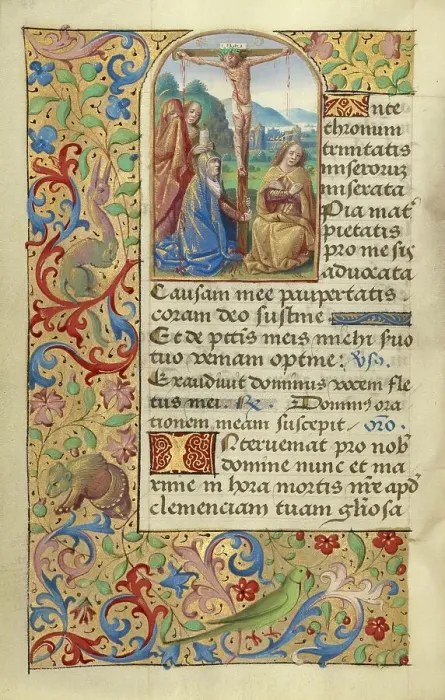 Ante
thronum
trinitatis
miseroruz
miserata
Pia mat
pietatis
pro me sis
aduocata
Causam mee paupertatis.
coram deo sustine
Et de pctis meis michi suo
tuo veniam optine: vs.
Exaudiuit dominus vocem fle
tus mei. R. Dominus ora
tionem meam suscepit oro.
INteruemat pro nob
domine nunc et ma
xime in hora mortis nre apd
clemenciam tuam gliosa